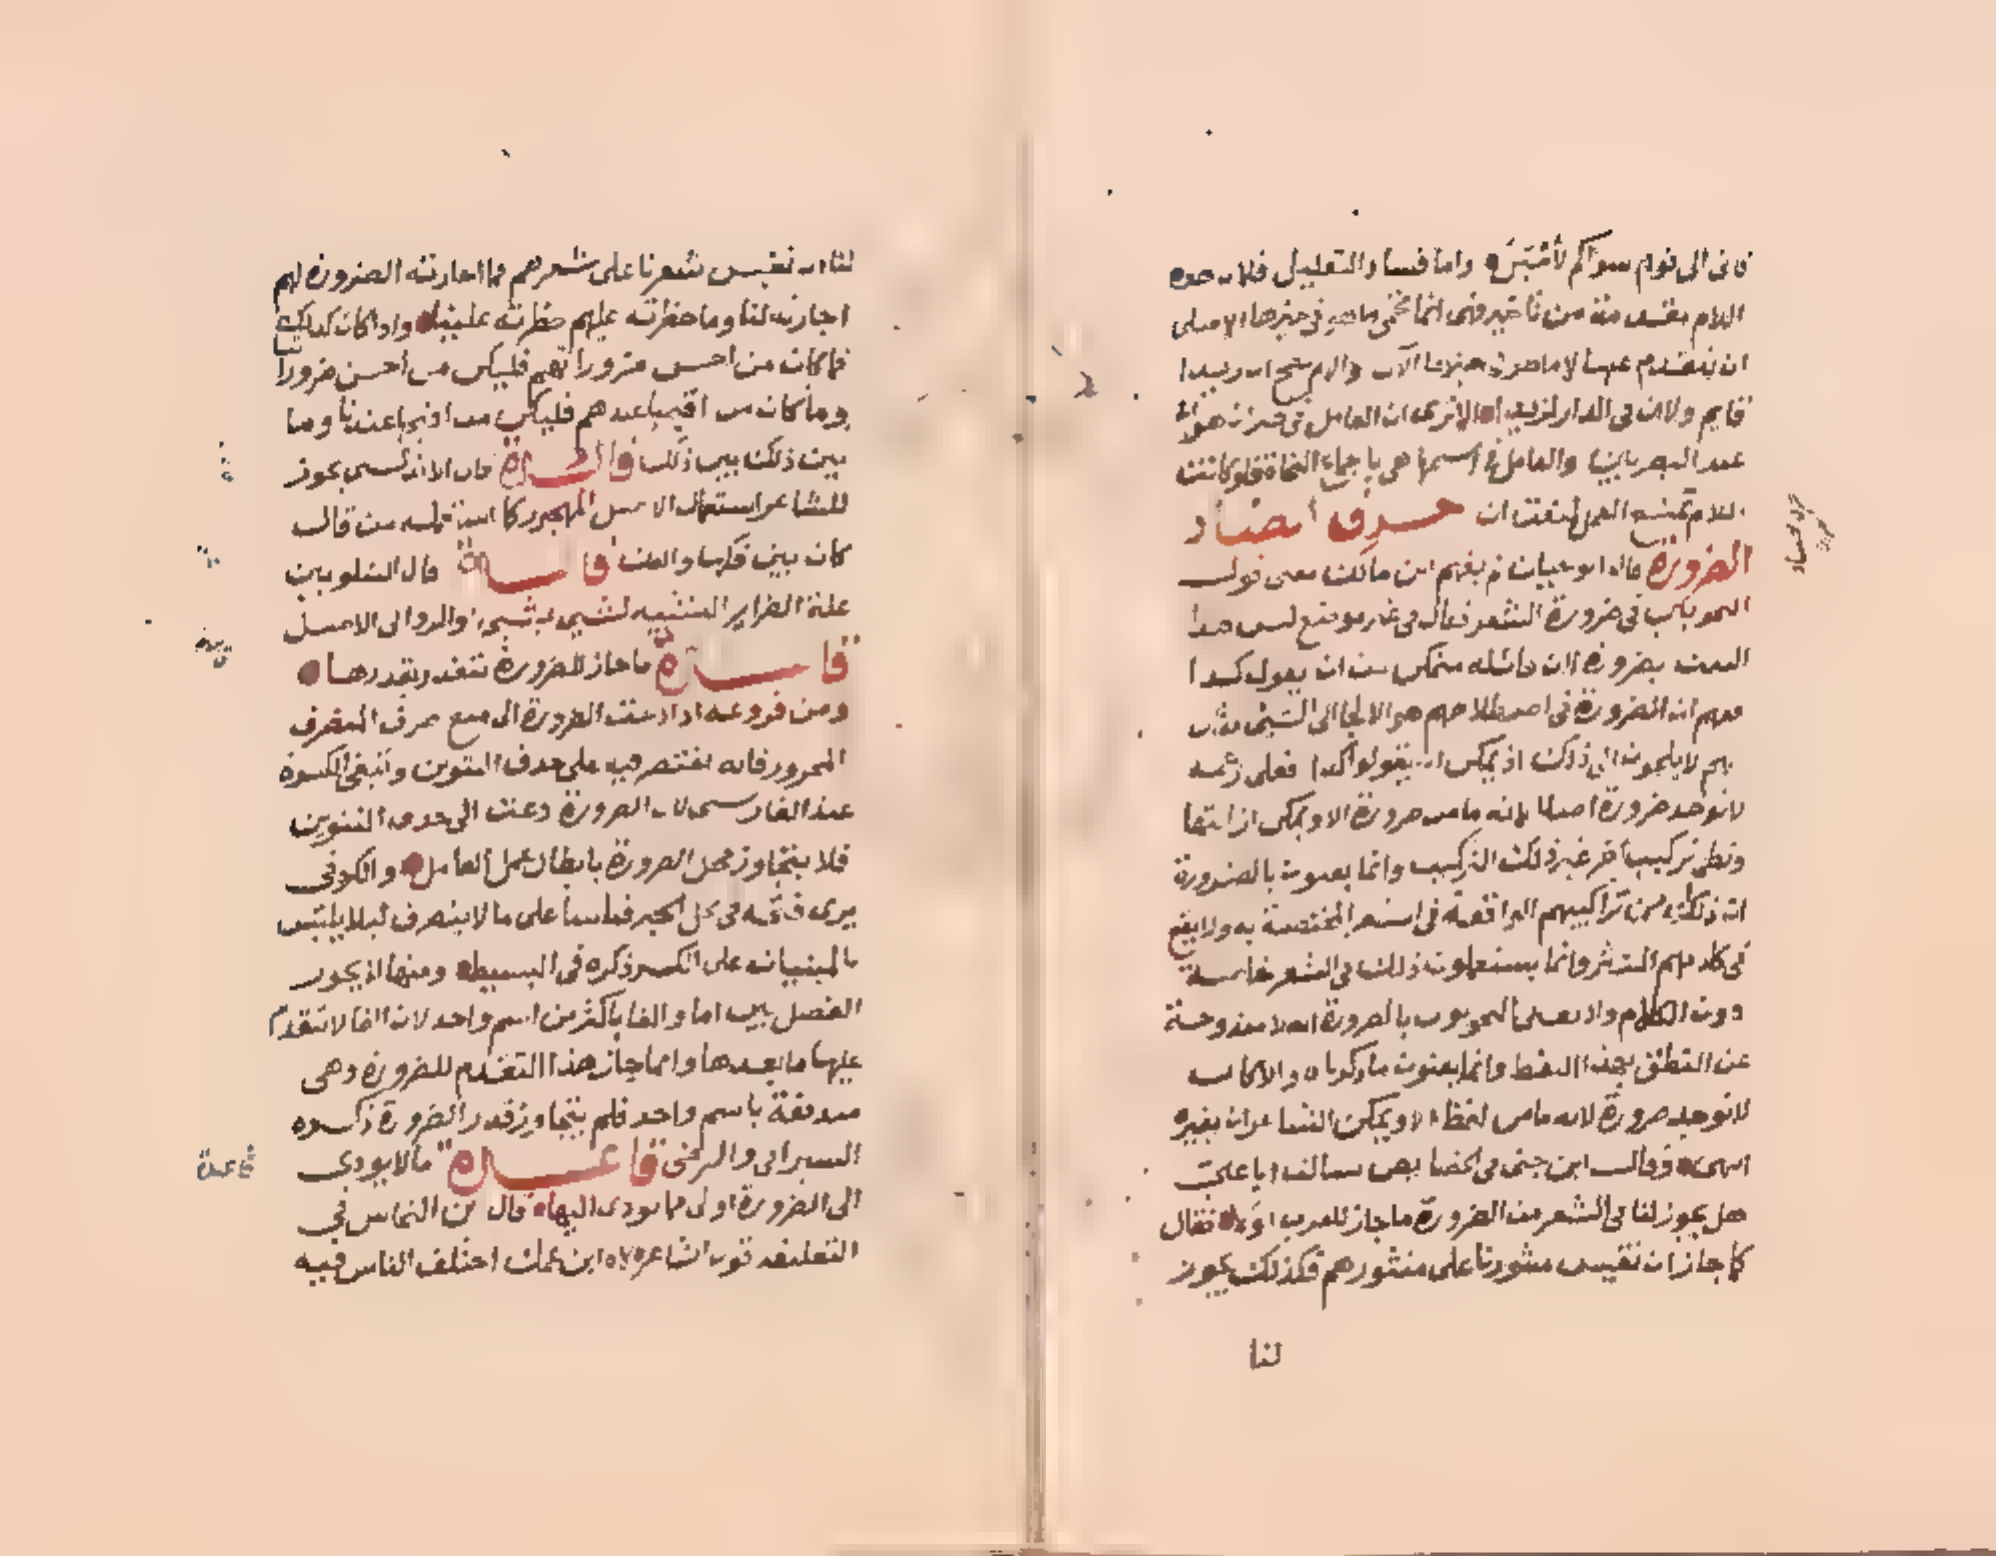 فانى الى قوم سواكم لأميَل واما فساد التعليل فلان هذه
اللام مقدمة من تاخير فهى انما تحمى ما هو فى حيزها الاصلى
ان يتقدم عليها لا ما هو فى حيزها الآن والا لم يصح ان زيدا
قايم ولا ان فى الدار لزيدا الا ترى ان العامل فى خبر ان هو ان
عند البصريين والعامل فى اسمها هى باجماع النحاة فلو كانت
اللام تمنع العمل لمنعت ان حرف الضاد
الضرورة قال ابو حيان لم يفهم ابن مالك معنى قول
النحويين فى ضرورة الشعر فقال فى غير موضع ليس هذا
البيت بضرورة لان قائله متمكن من ان يقول كذا
ففهم ان الضرورة فى اصطلاحهم هو الالجا الى الشى فقال
انهم لا يلجون الى ذلك اذ يمكن ان يقولوا كذا فعلى زعمه
لا توجد ضرورة اصلا لانه ما من ضرورة الا ويمكن ازالتها
ونظم تركيب آخر غير ذلك التركيب وانما يعنون بالضرورة
ان ذلك من تراكيبهم الواقعة فى الشعر المختصة به ولا يقع
فى كلامهم النثر وانما يستعملون ذلك فى الشعر خاصة
دون الكلام ولا يعنى النحويون بالضرورة انه لا مندوحة
عن النطق بهذا اللفظ وانما يعنون ما ذكرناه والا كان
لا توجد ضرورة لانه ما من لفظ الا ويمكن الشاعر ان يغيره
انتهى وقال ابن جنى فى الخصايص سالت ابا على
هل يجوز لنا فى الشعر من الضرورة ما جاز للعرب اولا فقال
كما جاز ان نقيس منثورنا على منثورهم فكذلك يجوز
لنا
لنا ان نقيس شعرنا على شعرهم فما اجازته الضرورة لهم
اجازته لنا وما حظرته عليهم حظرته علينا واذا كان كذلك
فما كان من احسن ضروراتهم فليكن من احسن ضروراتنا
وما كان من اقبحها عندهم فليكن من اقبحها عندنا وما
بين ذلك بين ذلك فايدة قال الاندلسى يجوز
للشاعر استعمال الاصل المهجور كما استعمله من قال
كان بين فكها والفك قاعدة قال الشلوبين
علة الضراير التشبيه لشى بشى والرد الى الاصل
قاعدة ما جاز للضرورة يتقدر بقدرها
ومن فروعه اذا دعت الضرورة الى منع صرف المنصرف
المجرور فانه يقتصر فيه على حذف التنوين وتبقى الكسرة
عند الفارسى لان الضرورة دعت الى حذف التنوين
فلا يتجاوز محل الضرورة بابطال عمل العامل والكوفى
يرى فتحه فى محل الجر قياسا على ما لا ينصرف ليلا يلتبس
بالمبنيات على الكسر ذكره فى البسيط ومنها لا يجوز
الفصل بين اما والفا باكثر من اسم واحد لان الفا لا يتقدم
عليها ما بعدها وانما جاز هذا التقدم للضرورة وهى
مندفعة باسم واحد فلم يتجاوز قدر الضرورة ذكره
السيرافى والرضى قاعدة ما لا يودى
الى الضرورة اولى مما يودى اليها قال ابن النحاس فى
التعليقة قول الشاعر لاه ابن عمك اختلف الناس فيه
قاعدة